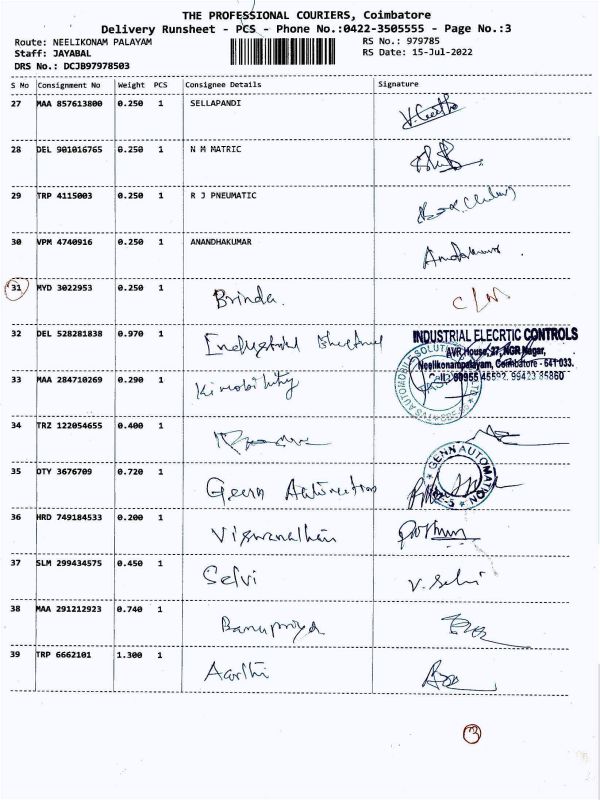 THE PROFESSIONAL COURIERS, Coimbatore
Delivery Runsheet - PCS - Phone No.:0422-3505555 - Page No.:3
Route: NEELIKONAM PALAYAM RS No.: 979785
Staff: JAYABAL RS Date: 15-Jul-2022
DRS No.: DCJB97978503
S Mo Consignment No Weight PCS Consignee Details Signature
27 MAA 857613800 0.250 1 SELLAPANDI
28 DEL 901016765 0.250 1 N M MATRIC
29 TRP 4115003 0.250 1 R J PNEUMATIC
30 VPM 4740916 0.250 1 ANANDHAKUMAR
31 MYD 3022953 0.250 1 Brinda.
32 DEL 528281838 0.970 1 Industrial
INDUSTRIAL ELECRTIC CONTROLS
AVR House, 27, NGR Nagar,
Neelikonampalayam, Coimbatore - 641 033.
33 MAA 284710269 0.290 1
34 TRZ 122054655 0.400 1
35 OTY 3676709 0.720 1 Genn Automation
GENN AUTOMATION
36 HRD 749184533 0.200 1 Viswanathan
37 SLM 299434575 0.450 1 Selvi V. Selvi
38 MAA 291212923 0.740 1 Banupriya
39 TRP 6662101 1.300 1 Aarthi
3